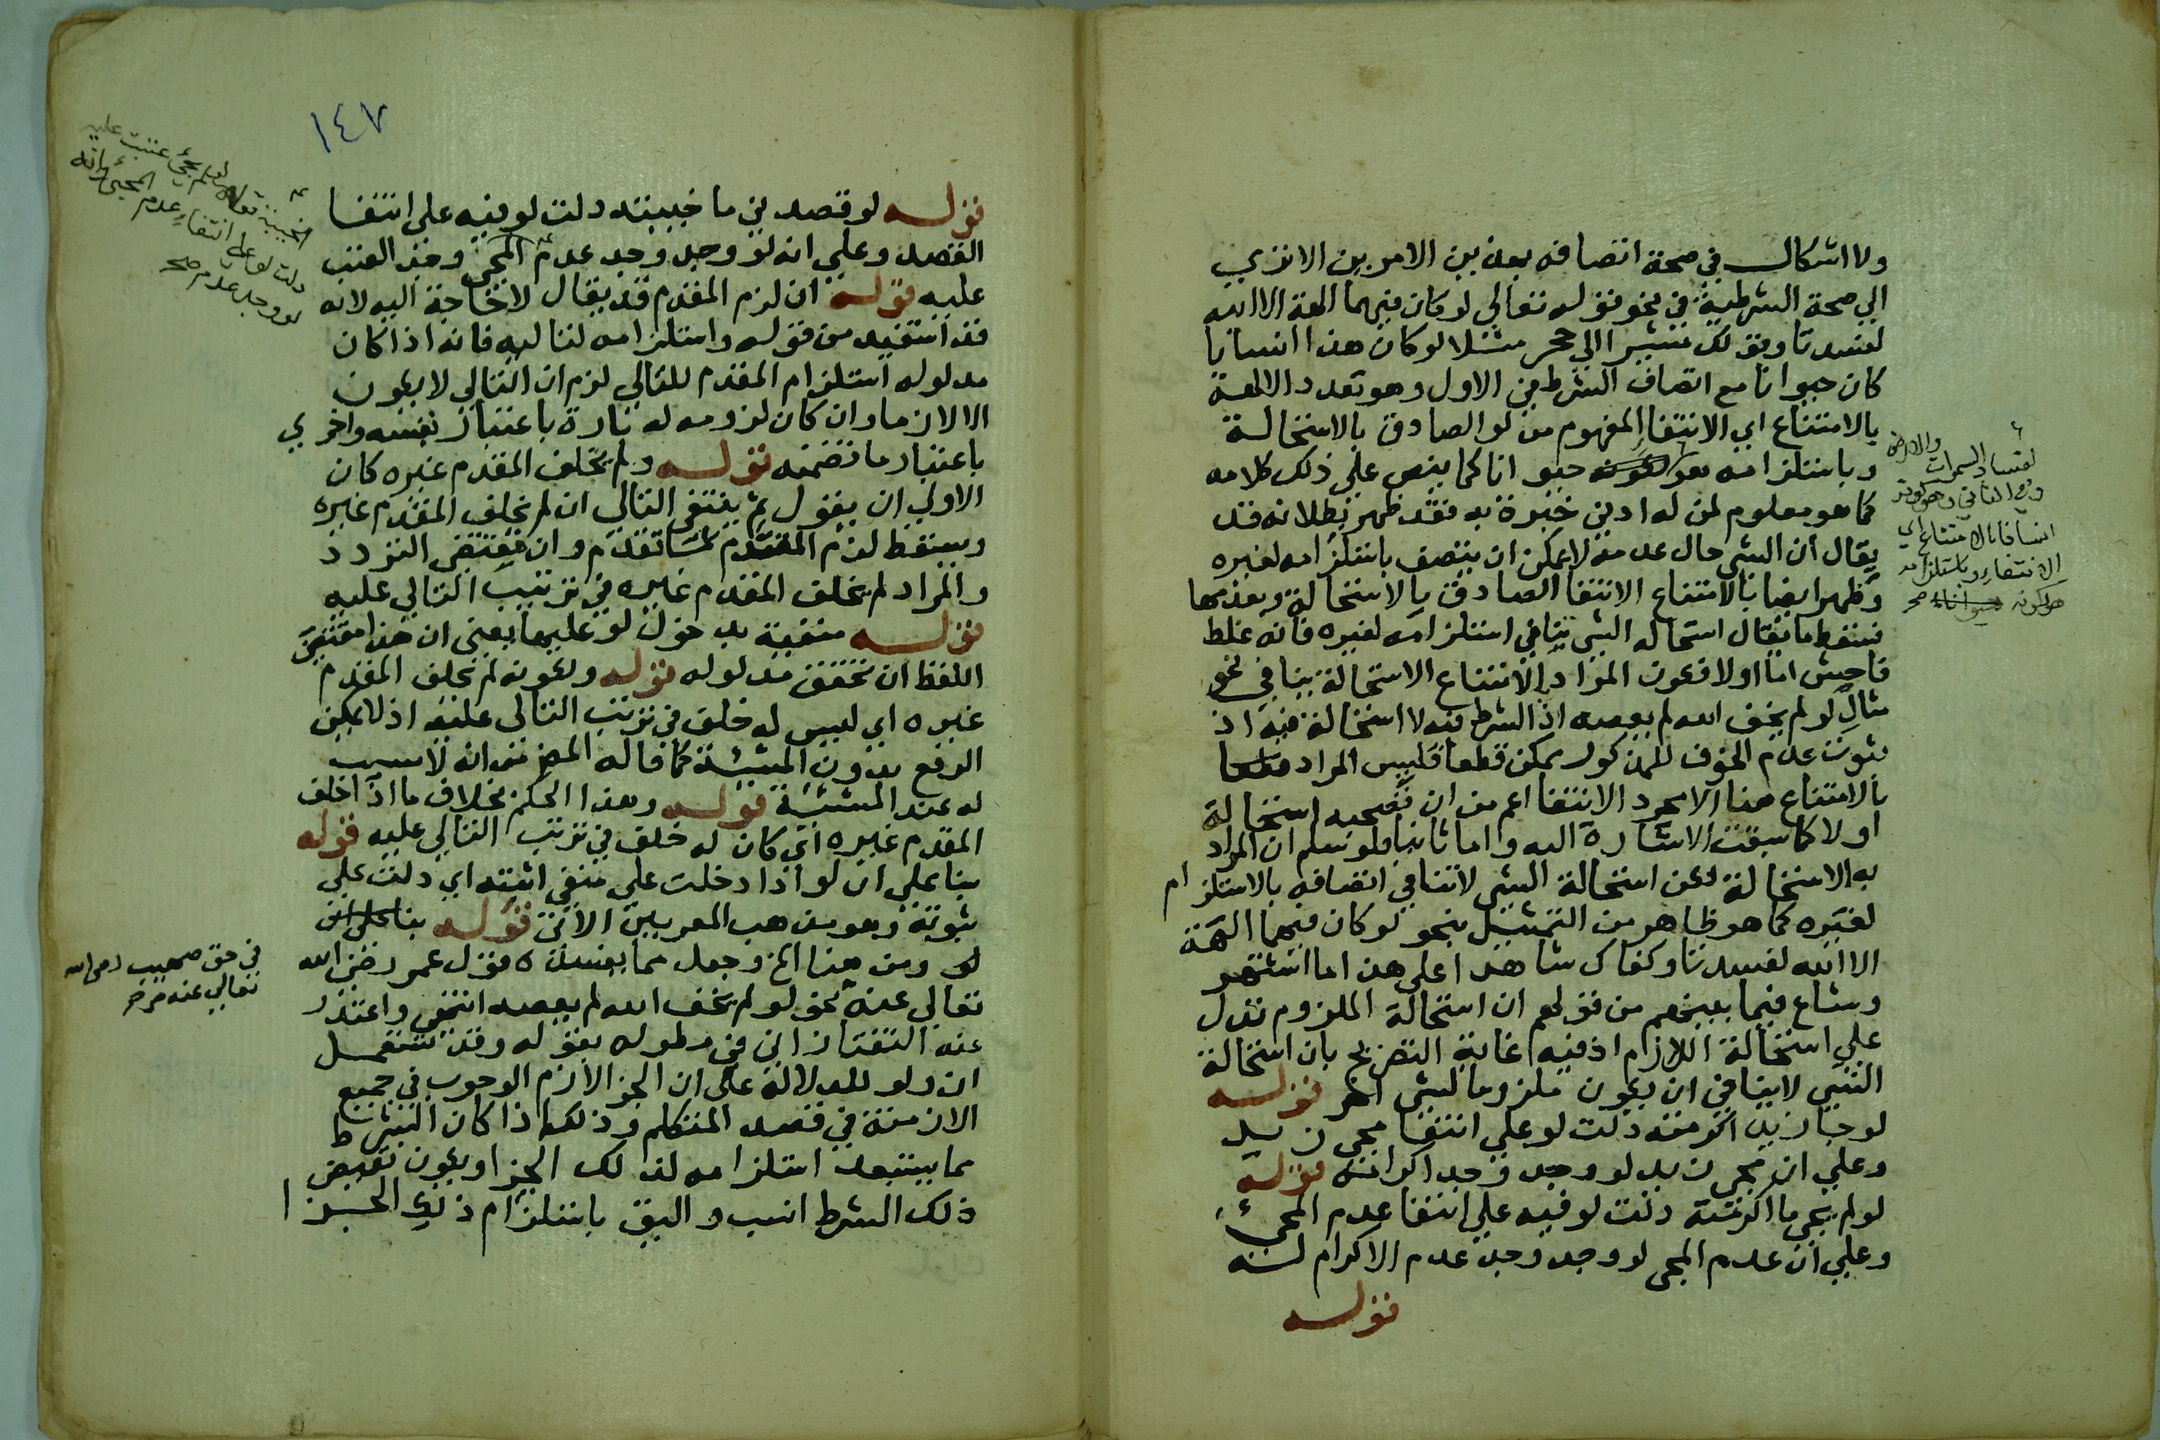 ولا اشكال في صحة اتصافه بهذين الامرين الا تري
الي صحة الشرطية في نحو قوله تعالي لو كان فيهما الهة الا الله
لفسدتا وقولك مشيرا الي حجر مثلا لو كان هذا انسانا
كان حيوانا مع اتصاف الشرط في الاول وهو تعدد الالهة
بالامتناع اي الانتفا المفهوم من لو الصادق بالاستحالة
وباستلزامه حيوانا كما ينص علي ذلك كلامه
كما هو معلوم لمن له ادني خبرة به فقد ظهر بطلانه قد
يقال ان الشي حال عدمه لا يمكن ان يتصف باستلزامه لغيره
وظهر ايضا بالامتناع الانتفا الصادق بالاستحالة وبعدمها
فسقط ما يقال استحالة الشي تنافي استلزامه لغيره فانه غلط
فاحش اما اولا فكون المراد بالامتناع الاستحالة ينافي نحو
مثال لو لم يخف الله لم يعصه اذ الشرط فيه لا استحالة فيه اذ
ثبوت عدم الخوف للمذكور ممكن قطعا فليس المراد
بالامتناع هنا الا مجرد الانتفا اعم من ان تصحبه استحالة
اولا كما سبقت الاشارة اليه واما ثانيا فلو سلم ان المراد
به الاستحالة لكن استحالة الشي لا تنافي اتصافه بالاستلزام
لغيره كما هو ظاهر من التمثيل بنحو لو كان فيهما الهة
الا الله لفسدتا وكفاك شاهدا علي هذا ما اشتهر
وشاع فيما بينهم من قولهم ان استحالة الملزوم تدل
علي استحالة اللازم اذ فيه غاية التصريح بان استحالة
الشي لا ينافي ان يكون ملزوما لشي اخر قوله
لو جا زيد اكرمته دلت لو علي انتفا مجي زيد
وعلي ان مجي زيد لو وجد وجد اكرامه قوله
لو لم يجي ما اكرمته دلت لو فيه علي انتفا عدم المجئ
وعلي ان عدم المجي لو وجد وجد عدم الاكرام له
قوله
لفساد السموات والارض
وفي الثاني وهو كونه
انسانا بالامتناع اي
الانتفاء وباستلزامه
هو لكونه حيوانا صح
١٤٧
قوله لو قصدني ما خيبته دلت لو فيه علي انتفا
القصد وعلي انه لو وجد وجد عدم المجي وجد العتب
عليه قوله ان لزم المقدم قد يقال لا حاجة اليه لانه
قد استفيد من قوله واستلزامه لتاليه فانه اذا كان
مدلوله استلزام المقدم للتالي لزم ان التالي لا يكون
الا لازما وان كان لزومه له تارة باعتبار نفسه واخري
باعتبار ما تضمنه قوله ولم يخلف المقدم غيره كان
الاولي ان يقول ثم ينتفي التالي ان لم يخلف المقدم غيره
ويسقط لزم المقدم لما تقدم وان مقتضي التردد
والمراد لم يخلف المقدم غيره في ترتيب التالي عليه
قوله منفية بدخول لو عليها يعني ان هذا مقتضي
اللفظ ان تحقق مدلوله قوله ولكونه لم يخلف المقدم
غيره اي ليس له خلف في ترتب التالي عليه اذ لا يمكن
الرفع بدون المشيئة كما قاله المص من انه لا سبب
له عند المشيئة قوله وهذا الحكم بخلاف ما اذا خلف
المقدم غيره اي كان له خلف في ترتب التالي عليه قوله
بنا علي ان لو اذا دخلت علي منفي اثبتته اي دلت علي
ثبوته وهو مذهب المعربين الاتي قوله بنا علي ان
لو ومن هنا الخ وجعل مما يفسده قول عمر رضي الله
تعالي عنه نحو لو لم يخف الله لم يعصه انتهي واعتذر
عنه التفتازاني في مطوله بقوله وقد تستعمل
ان ولو للدلالة علي ان الجزا لازم الوجود في جميع
الازمنة في قصد المتكلم وذلك اذا كان الشرط
مما يستبعد استلزامه لذلك الجزا ويكون نقيض
ذلك الشرط انسب واليق باستلزام ذلك الجزا
لو لم يجئ عتبت عليه
دلت لو علي انتفاء عدم المجئ وانه
لو وجد عدم صح
في حق صهيب رضي الله
تعالي عنه